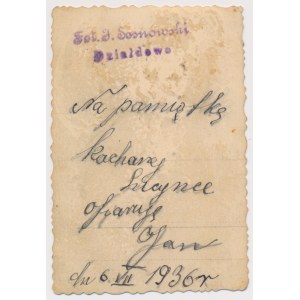 Fot. J. Sosnowski
Działdowo
Na pamiątkę
kochanej
Lucynce
ofiaruje
Jan
dn 6. VII 1936 r